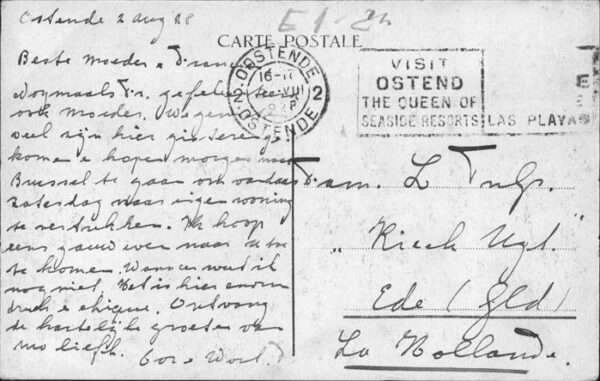 Ostende 2 aug 28
E1-2h
CARTE POSTALE
Beste Moeder e
nogmaals
ook moeder. Wegens
veel zijn hier gisteren ge-
komen e hopen morgen naar
Brussel te gaan om
Zaterdag naar eigen woning
te vertrekken. Ik hoop
eens gauw weer naar u toe
te komen. Wanneer weet ik
nog niet. Het is hier enorm
druk e chique. Ontvang
de hartelijke groeten van
liefh.
Cor e
OOSTENDE
16-17
VIII
2
OSTENDE
VISIT
OSTEND
THE QUEEN OF
SEASIDE RESORTS
LAS PLAYAS
E
Fam. L
"
Ede (Gld)
La Hollande.